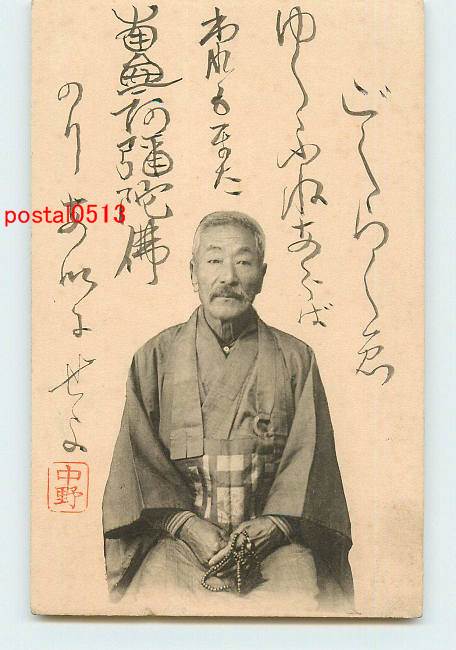 ごくらくゑ
ゆくふねあらば
われもまた
南無阿彌陀佛
のりあいにせよ
中野
postal0513